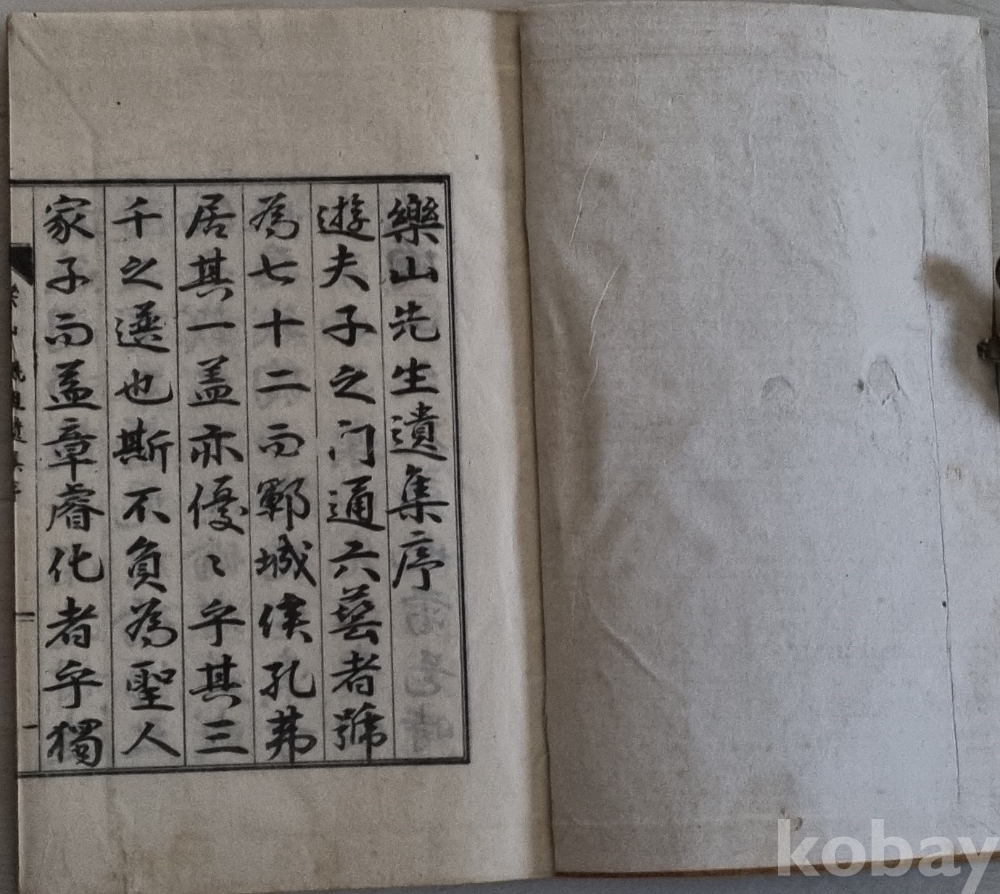 樂山先生遺集序
遊夫子之门通六藝者號
為七十二而鄆城侯孔茀
居其一盖亦優〻乎其三
千之選也斯不負為聖人
家子而盖章睿化者乎獨
kobay